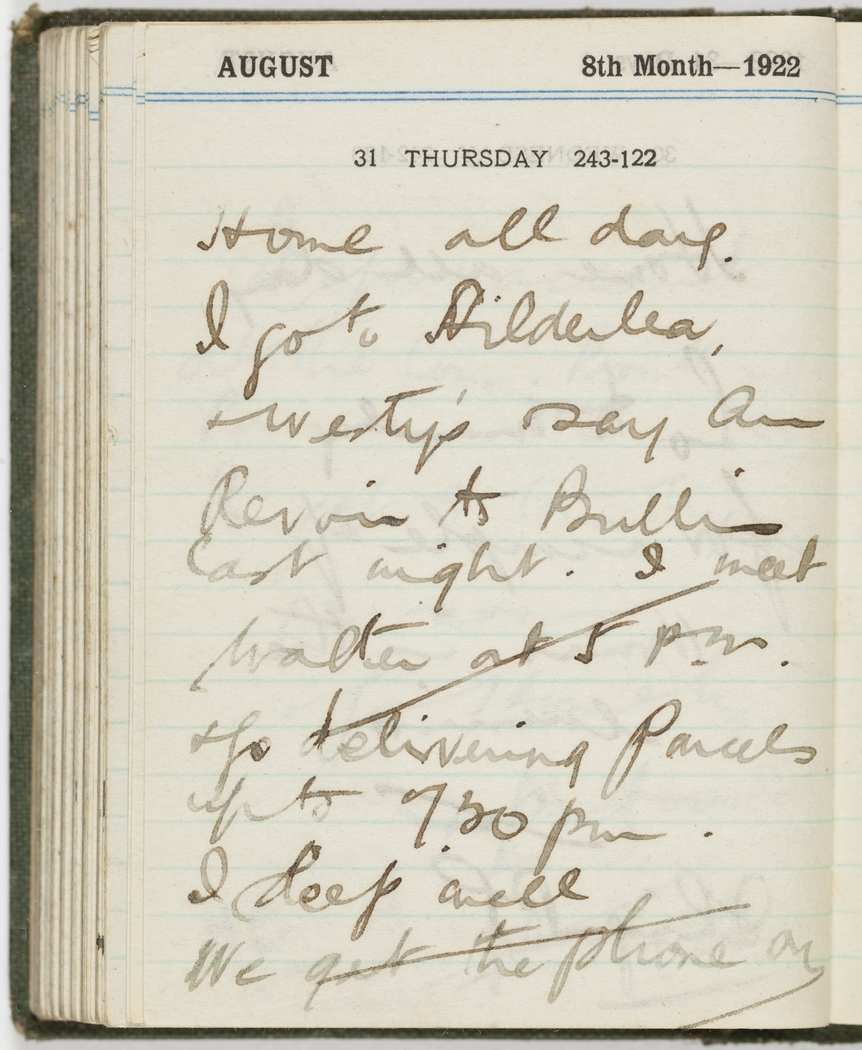 AUGUST 8th Month—1922
31 THURSDAY 243-122
Home all day.
I go to Hilderlea,
+ Westy's say Au
Revoir to Bulli
Last night. I meet
Walter at 5 p.m.
+ go delivering Parcels
up to 730 pm.
I sleep well
We get the phone on